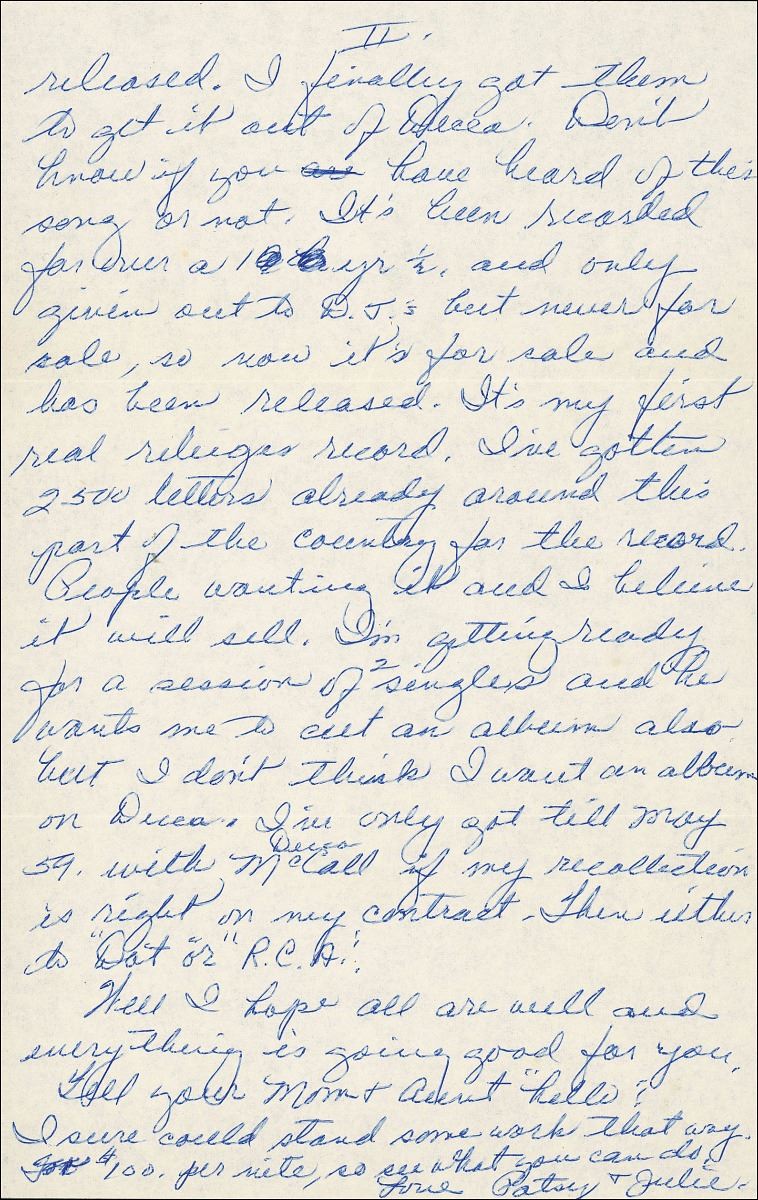 II.
released. I finalley got them
to get it out of Decca. Don't
know if you are have heard of this
song or not. It's been recorded
for over a 1 yr ½, and only
given out to D.J.'s but never for
sale, so now it's for sale and
has been released. It's my first
real religes record. I've gotten
2500 letters already around this
part of the country for the record.
People wanting it and I believe
it will sell. I'm getting ready
for a session of 2 singles and he
wants me to cut an album also
but I don't think I want an album
on Decca. I've only got till May
Decca
59. with McCall if my recollection
is right on my contract. Then either
to "Dot" or "R.C.A.".
Well I hope all are well and
everything is going good for you.
Tell your Mom & Aunt "hello".
I sure could stand some work that way.
For $100. per nite, so see what you can do.
Love Patsy & Julie.